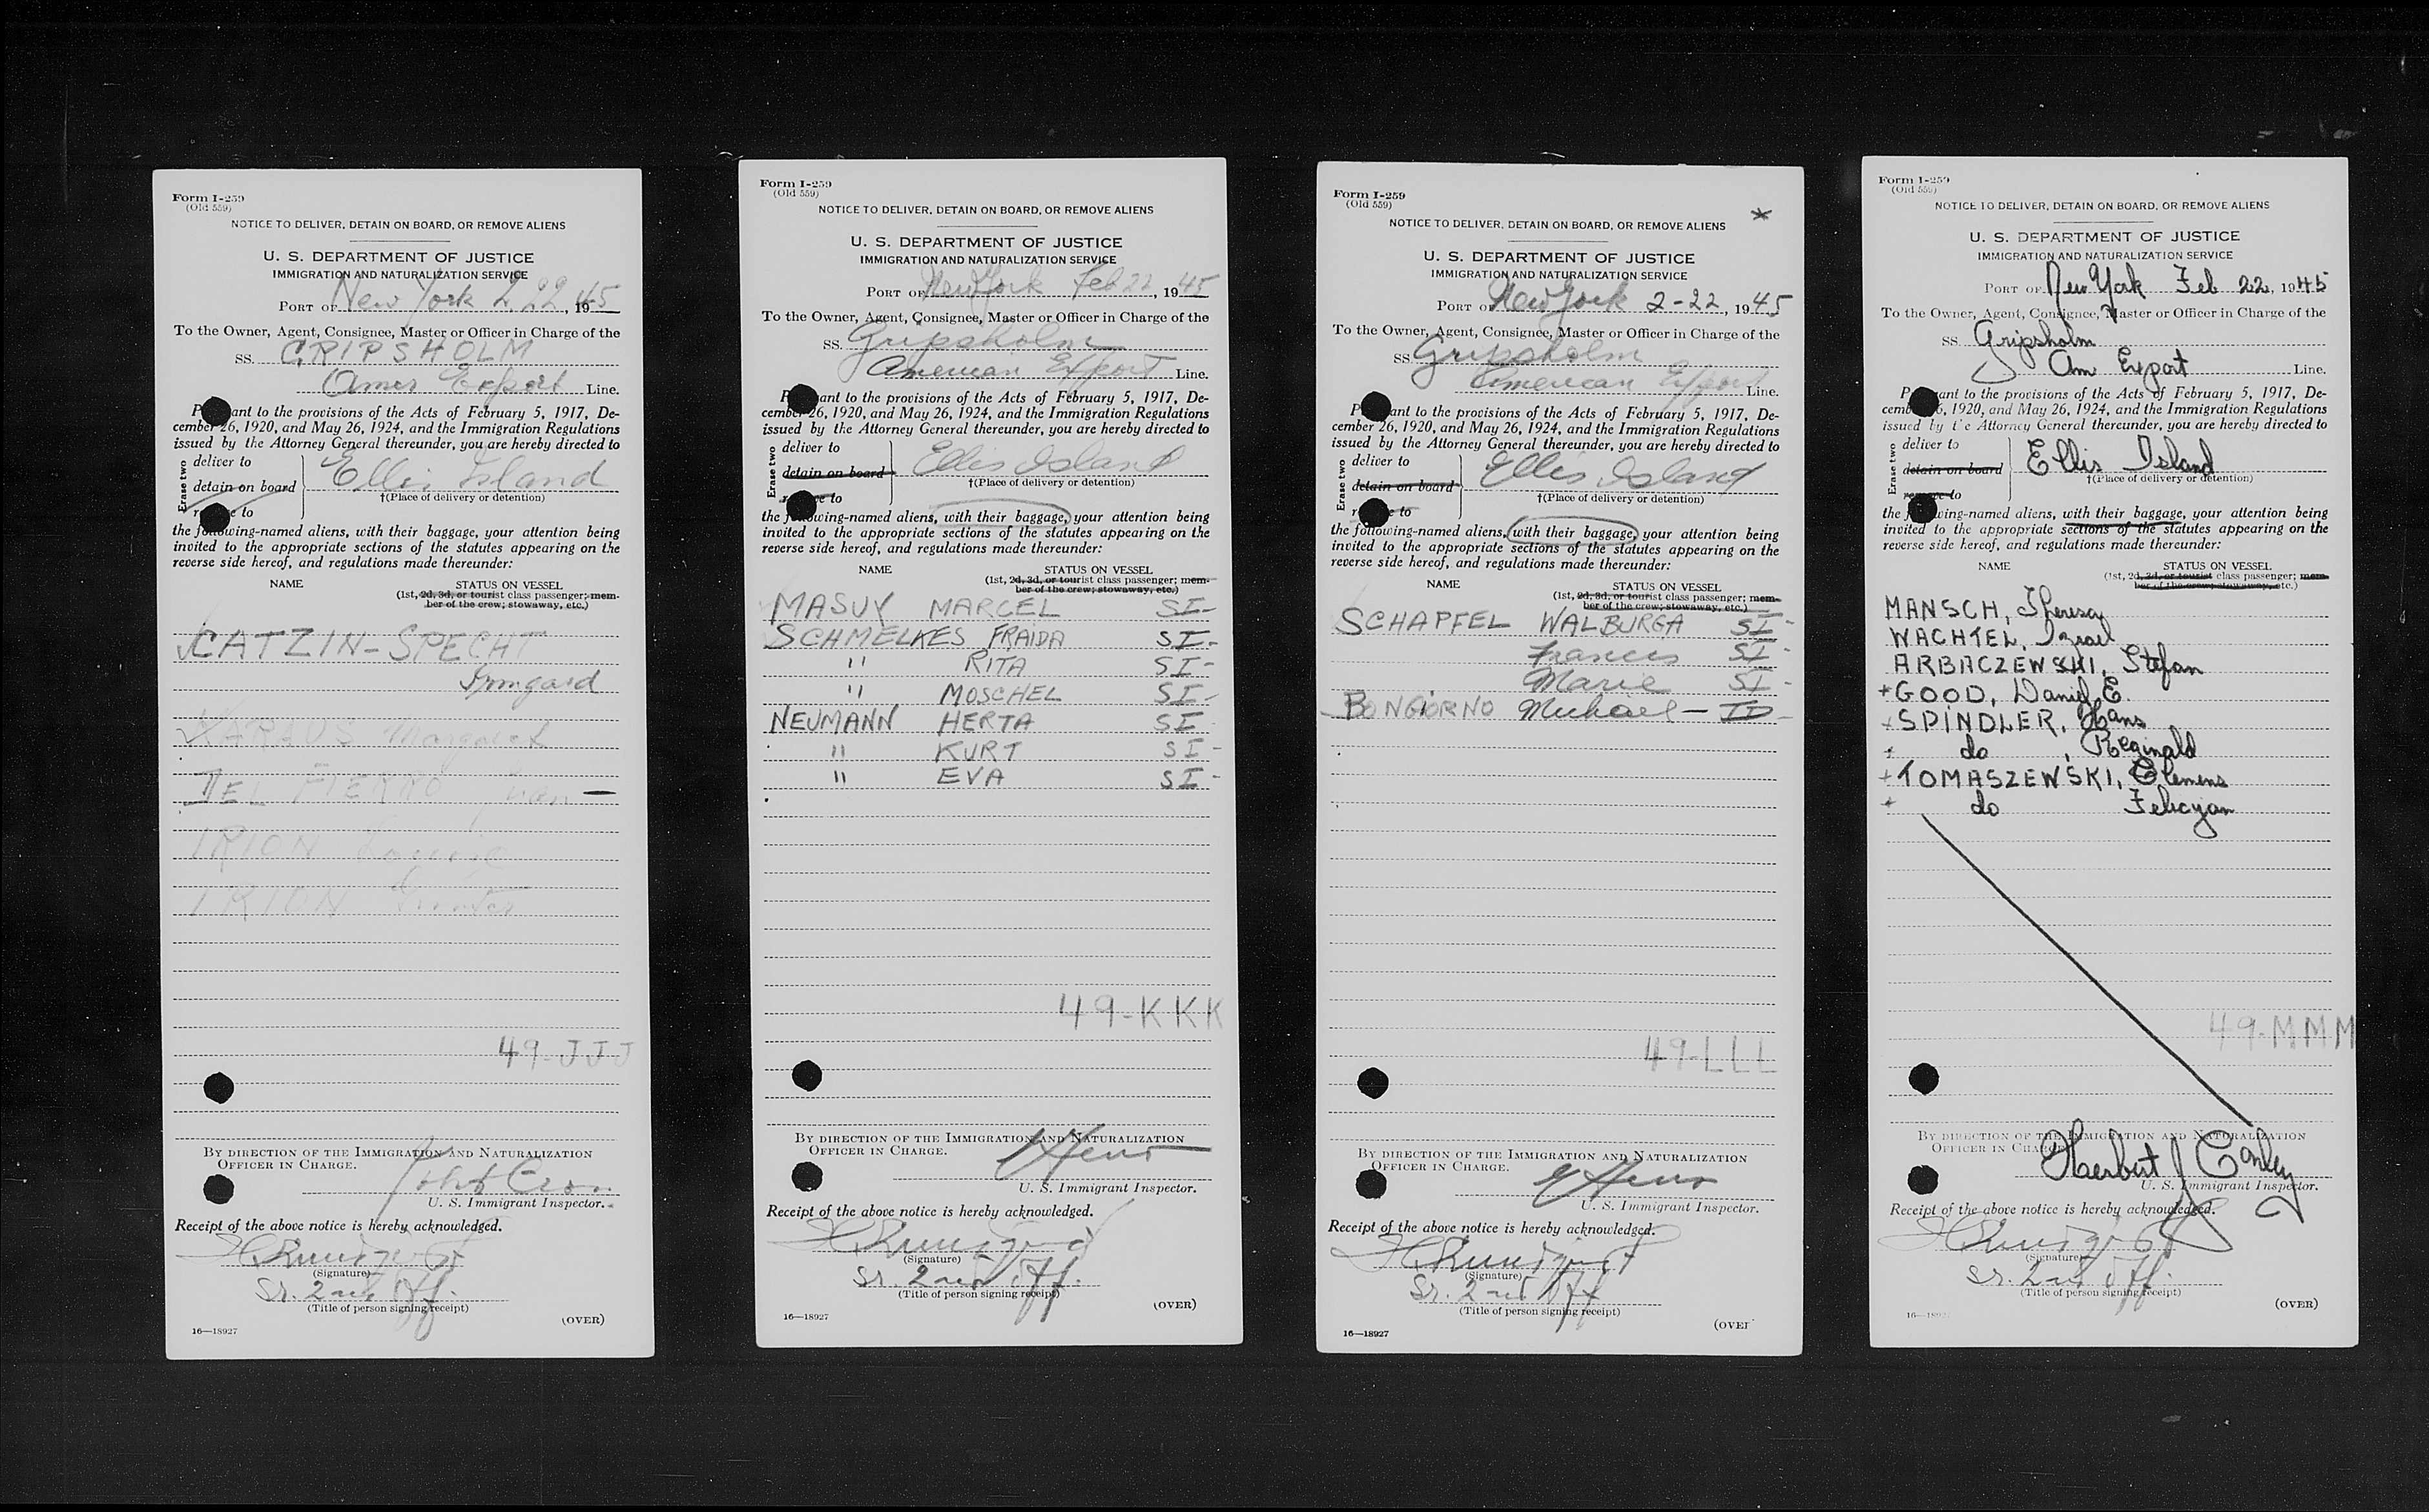 Form I-259
(Old 559)
NOTICE TO DELIVER, DETAIN ON BOARD, OR REMOVE ALIENS
U. S. DEPARTMENT OF JUSTICE
IMMIGRATION AND NATURALIZATION SERVICE
PORT OF New York 2.22, 1945
To the Owner, Agent, Consignee, Master or Officer in Charge of the
SS. GRIPSHOLM
Amer Export Line.
ant to the provisions of the Acts of February 5, 1917, De-
cember 26, 1920, and May 26, 1924, and the Immigration Regulations
issued by the Attorney General thereunder, you are hereby directed to
Erase two
deliver to
detain on board
to
Ellis Island
†(Place of delivery or detention)
the following-named aliens, with their baggage, your attention being
invited to the appropriate sections of the statutes appearing on the
reverse side hereof, and regulations made thereunder:
NAME STATUS ON VESSEL
(1st, 2d, 3d, or tourist class passenger; mem-
ber of the crew; stowaway, etc.)
CATZIN-SPECHT
Irmgard
KARAUS Margaret
DEL FIERRO Juan —
IRION Louise
IRION
49-JJJ
BY DIRECTION OF THE IMMIGRATION AND NATURALIZATION
OFFICER IN CHARGE.
U. S. Immigrant Inspector.
Receipt of the above notice is hereby acknowledged.
(Signature)
Sr. 2nd Off.
(Title of person signing receipt)
(OVER)
16—18927
Form I-259
(Old 559)
NOTICE TO DELIVER, DETAIN ON BOARD, OR REMOVE ALIENS
U. S. DEPARTMENT OF JUSTICE
IMMIGRATION AND NATURALIZATION SERVICE
PORT OF New York Feb 22, 1945
To the Owner, Agent, Consignee, Master or Officer in Charge of the
SS. Gripsholm
American Export Line.
ant to the provisions of the Acts of February 5, 1917, De-
cember 26, 1920, and May 26, 1924, and the Immigration Regulations
issued by the Attorney General thereunder, you are hereby directed to
Erase two
deliver to
detain on board
to
Ellis Island
†(Place of delivery or detention)
the following-named aliens, with their baggage, your attention being
invited to the appropriate sections of the statutes appearing on the
reverse side hereof, and regulations made thereunder:
NAME STATUS ON VESSEL
(1st, 2d, 3d, or tourist class passenger; mem-
ber of the crew; stowaway, etc.)
MASUY MARCEL SI-
SCHMELKES FRAIDA SI-
" RITA SI-
" MOSCHEL SI-
NEUMANN HERTA SI
" KURT SI-
" EVA SI-
49-KKK
BY DIRECTION OF THE IMMIGRATION AND NATURALIZATION
OFFICER IN CHARGE.
U. S. Immigrant Inspector.
Receipt of the above notice is hereby acknowledged.
(Signature)
Sr. 2nd Off.
(Title of person signing receipt)
(OVER)
16—18927
Form I-259
(Old 559)
*
NOTICE TO DELIVER, DETAIN ON BOARD, OR REMOVE ALIENS
U. S. DEPARTMENT OF JUSTICE
IMMIGRATION AND NATURALIZATION SERVICE
PORT OF New York 2-22, 1945
To the Owner, Agent, Consignee, Master or Officer in Charge of the
SS. Gripsholm
American Export Line.
ant to the provisions of the Acts of February 5, 1917, De-
cember 26, 1920, and May 26, 1924, and the Immigration Regulations
issued by the Attorney General thereunder, you are hereby directed to
Erase two
deliver to
detain on board
to
Ellis Island
†(Place of delivery or detention)
the following-named aliens, with their baggage, your attention being
invited to the appropriate sections of the statutes appearing on the
reverse side hereof, and regulations made thereunder:
NAME STATUS ON VESSEL
(1st, 2d, 3d, or tourist class passenger; mem-
ber of the crew; stowaway, etc.)
SCHAPFEL WALBURGA SI-
Frances SI-
Marie SI-
BONGIORNO Michael — TD
49-LLL
BY DIRECTION OF THE IMMIGRATION AND NATURALIZATION
OFFICER IN CHARGE.
U. S. Immigrant Inspector.
Receipt of the above notice is hereby acknowledged.
(Signature)
Sr. 2nd Off
(Title of person signing receipt)
(OVER
16—18927
Form I-259
(Old 559)
NOTICE TO DELIVER, DETAIN ON BOARD, OR REMOVE ALIENS
U. S. DEPARTMENT OF JUSTICE
IMMIGRATION AND NATURALIZATION SERVICE
PORT OF New York Feb 22, 1945
To the Owner, Agent, Consignee, Master or Officer in Charge of the
SS. Gripsholm
Am Export Line.
ant to the provisions of the Acts of February 5, 1917, De-
cember 26, 1920, and May 26, 1924, and the Immigration Regulations
issued by the Attorney General thereunder, you are hereby directed to
Erase two
deliver to
detain on board
to
Ellis Island
†(Place of delivery or detention)
the following-named aliens, with their baggage, your attention being
invited to the appropriate sections of the statutes appearing on the
reverse side hereof, and regulations made thereunder:
NAME STATUS ON VESSEL
(1st, 2d, 3d, or tourist class passenger; mem-
ber of the crew; stowaway, etc.)
MANSCH, Theresa
WACHTEL, Israel
ARBACZEWSKI, Stefan
+GOOD, Daniel E.
+SPINDLER, Hans
+ do , Reginald
+TOMASZEWSKI, Clemens
+ do Felicyan
49-MMM
BY DIRECTION OF THE IMMIGRATION AND NATURALIZATION
OFFICER IN CHARGE.
Herbert J Conley
U. S. Immigrant Inspector.
Receipt of the above notice is hereby acknowledged.
(Signature)
Sr. 2nd Off.
(Title of person signing receipt)
(OVER)
16—18927